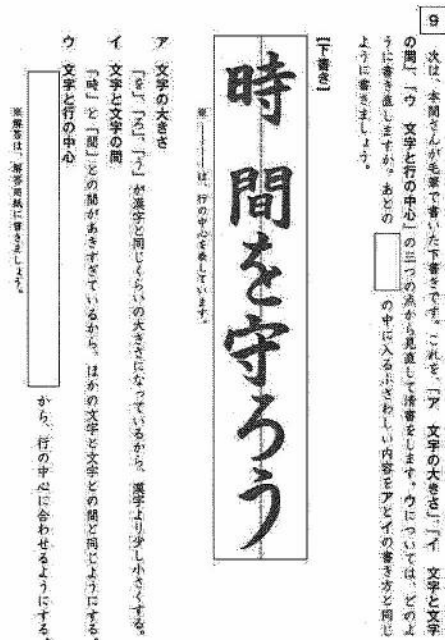 9
次は、本間さんが毛筆で書いた下書きです。これを、「ア 文字の大きさ」、「イ 文字と文字
の間」、「ウ 文字と行の中心」の三つの点から見直して清書をします。ウについては、どのよ
うに書き直しますか。あとの の中に入るふさわしい内容をアとイの書き方と同じ
ように書きましょう。
【下書き】
時間を守ろう
※ は、行の中心を表しています。
ア 文字の大きさ
「を」、「ろ」、「う」が漢字と同じくらいの大きさになっているから、漢字より少し小さくする。
イ 文字と文字の間
「時」と「間」との間があきすぎているから、ほかの文字と文字との間と同じようにする。
ウ 文字と行の中心
から、行の中心に合わせるようにする。
※解答は、解答用紙に書きましょう。